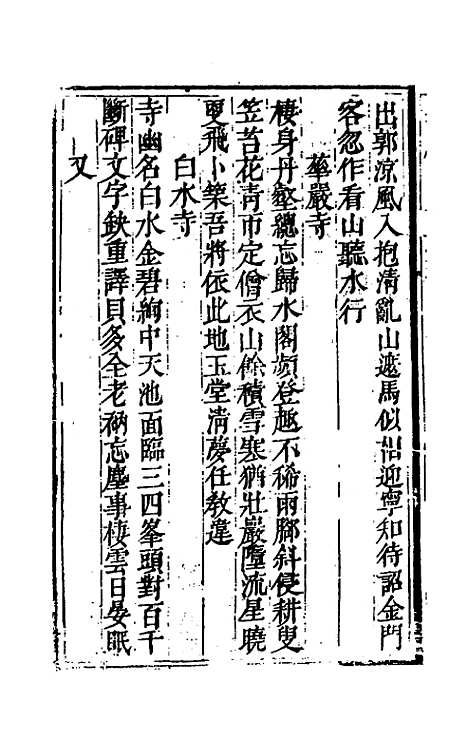 出郭凉風入抱清亂山遮馬似相迎寧知待詔金門
客忽作看山聽水行
華嚴寺
棲身丹壑總忘歸水閣頻登趣不稀雨脚斜侵耕叟
笠苔花青市定僧衣山餘積雪寒猶壯巖墮流星曉
更飛卜築吾將依此地玉堂清夢任教違
白水寺
寺幽名白水金碧絢中天池面臨三四峯頭對百千
斷碑文字缺重譯貝多全老衲忘塵事棲雲日晏眠
又